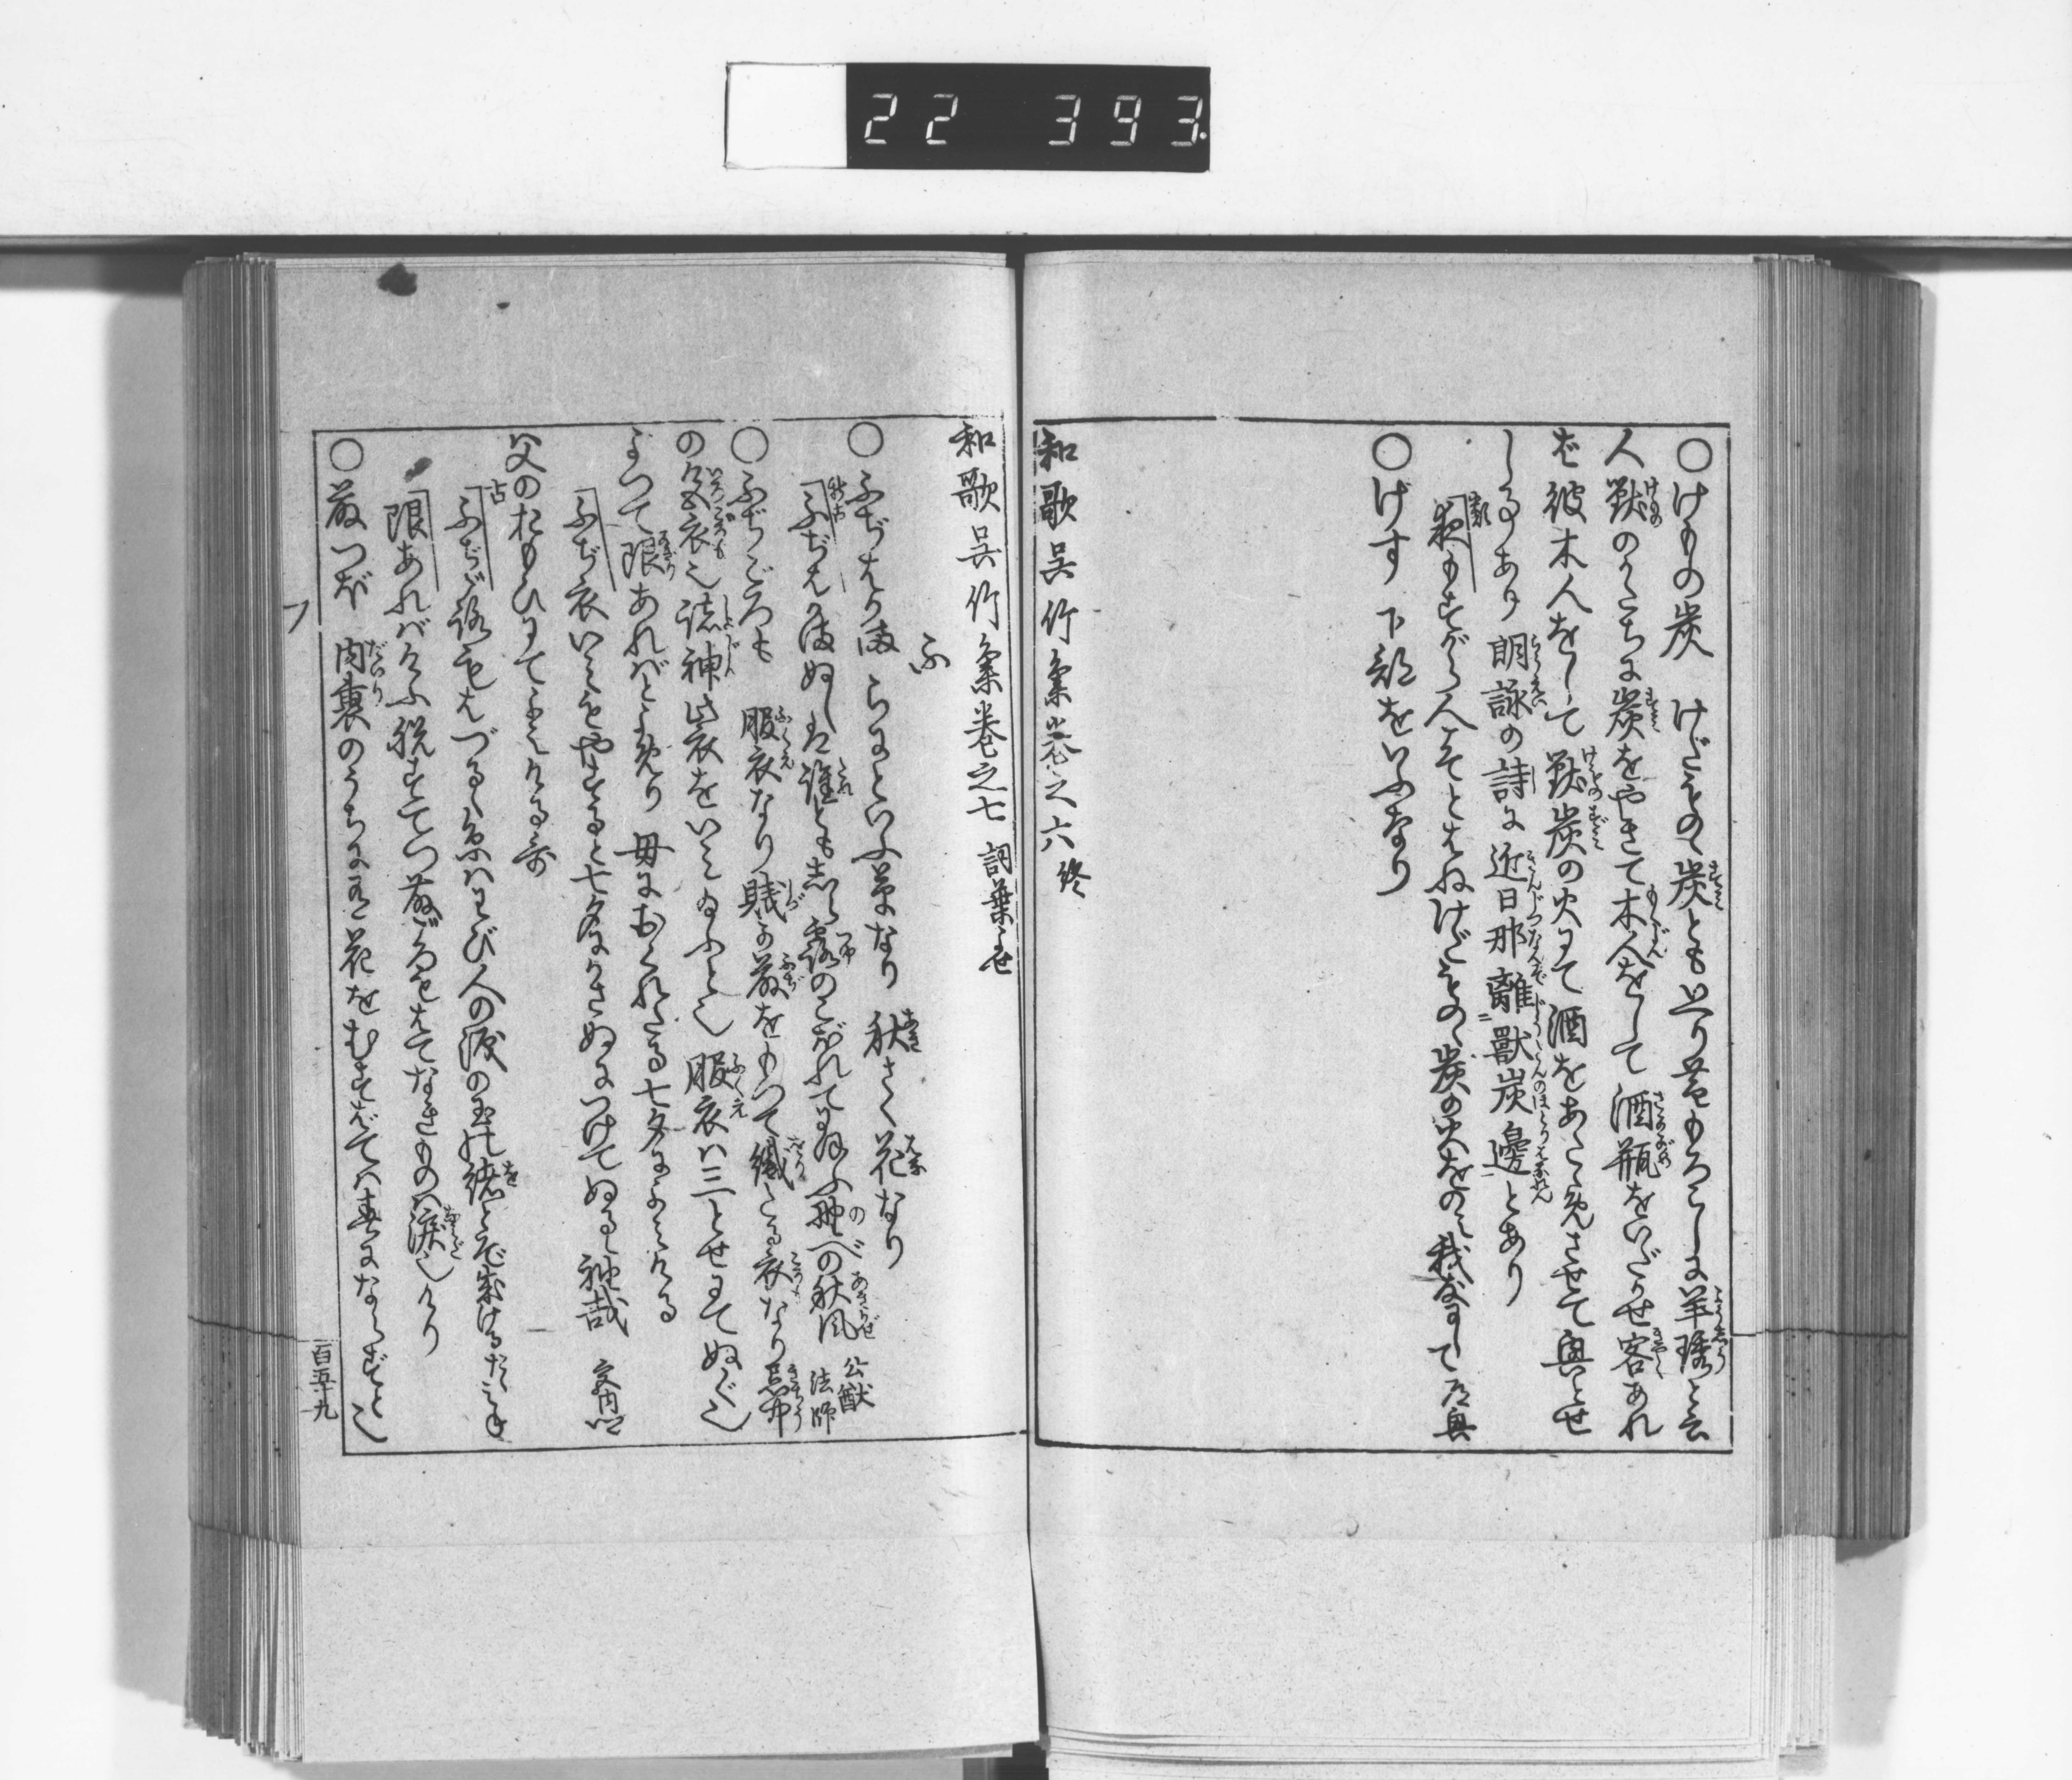 22 393
○けもの炭 けだものゝ炭とも云り昔もろこしに羊琇と云
人獣のかたちに炭をやきて木人をして酒瓶をいだかせ客あれ
ば彼木人をして獣炭の火にて酒をあたゝめさせて興とせ
しるあり朗詠の詩に近日那離獣炭邊とあり
もすがら人そとはぬけだものゝ炭の火をのみ我
○げす 下部をいふなり
和歌呉竹集巻之六終
和歌呉竹集巻之七 詞葉よせ
ふ
○ふぢばかま らにといふ草なり 秋さく花なり
ふぢばかまぬしは誰とも しら露のこぼれてにほふ野べの秋風 公猷法師
○ふぢごろも 服衣なり 賎が藤をもつて織たる衣なり
の色衣也 諸神此衣をいみ給ふと也 服衣ハ三とせにてぬぐ也
よつて限あればとよめり 母におくれたる七夕によみける
ふぢ衣いみもやすると七夕にかさぬにつけてぬるゝ袖哉
父のおもひにてよみける哥
古 ふぢ衣はづるゝ糸ハわび人の涙の玉の緒とぞ成ける
限あればけふ脱すてつ藤ごろもはてなきものハ涙也けり
○藤つぼ 内裏のうちに 花を
フ
百五十九